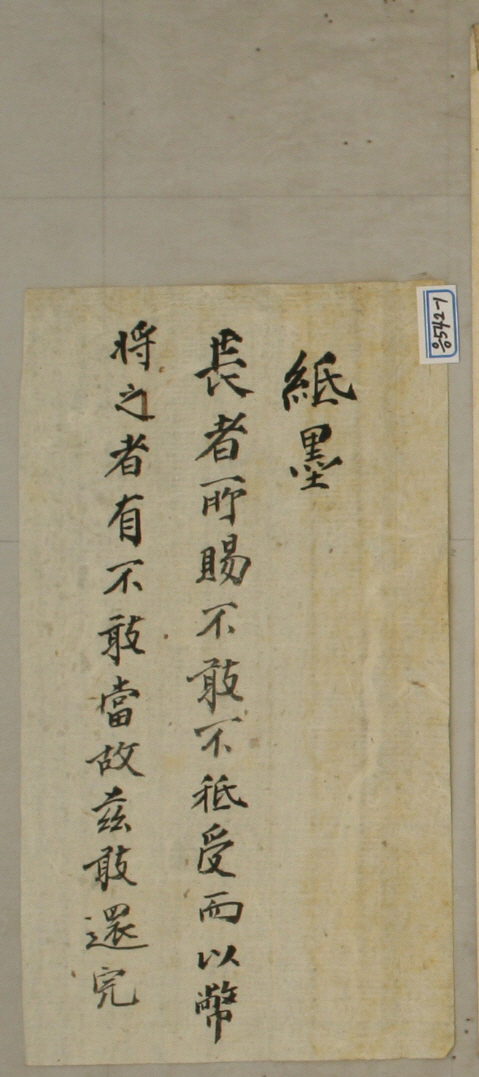 紙墨
長者所賜不敢不祗受而以幣
將之者有不敢當故玆敢還完
응542-1